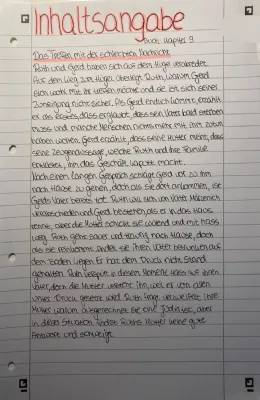 Inhaltsangabe
Buch: Kapitel 9
Das Treffen mit der schlechten Nachricht
Ruth und Gerd haben sich auf dem Hügel verabredet.
Auf dem Weg zum Hügel überlegt Ruth, warum Gerd
sich wohl mit ihr treffen möchte und sie ist sich seiner
Zuneigung nicht sicher. Als Gerd endlich kommt, erzählt
er als erstes, dass er glaubt, dass sein Vater bald sterben
muss und manche Menschen nichts mehr mit ihm zu tun
haben wollen. Gerd erzählt, dass seine Mutter meint, dass
seine Zeugenaussage, welche Ruth und ihre Familie
entlastet, ihm das Geschäft kaputt macht.
Nach einem langen Gespräch schlägt Gerd vor zu ihm
nach Hause zu gehen, doch als sie dort ankommen, ist
Gerds Vater bereits tot. Ruth will sich von Vater
verabschieden und Gerd bestehen, als er in das Haus
rennt, aber die Mutter schickt sie wütend und mit Hass
weg. Ruth geht sauer und traurig nach Hause, doch
als sie reinkommt findet sie ihren Vater betrunken auf
dem Boden liegen. Er hat dem Druck nicht Stand
gehalten. Ruth verspürt in diesem Moment Hass auf ihren
Vater, doch die Mutter versteht ihn, weil er von allen
unter Druck gesetzt wird. Ruth fragt verzweifelt ihre
Mutter warum ausgerechnet sie eine Jüdin ist, aber
in dieser Situation findet Ruths Mutter keine gute
Antwort und schweigt.